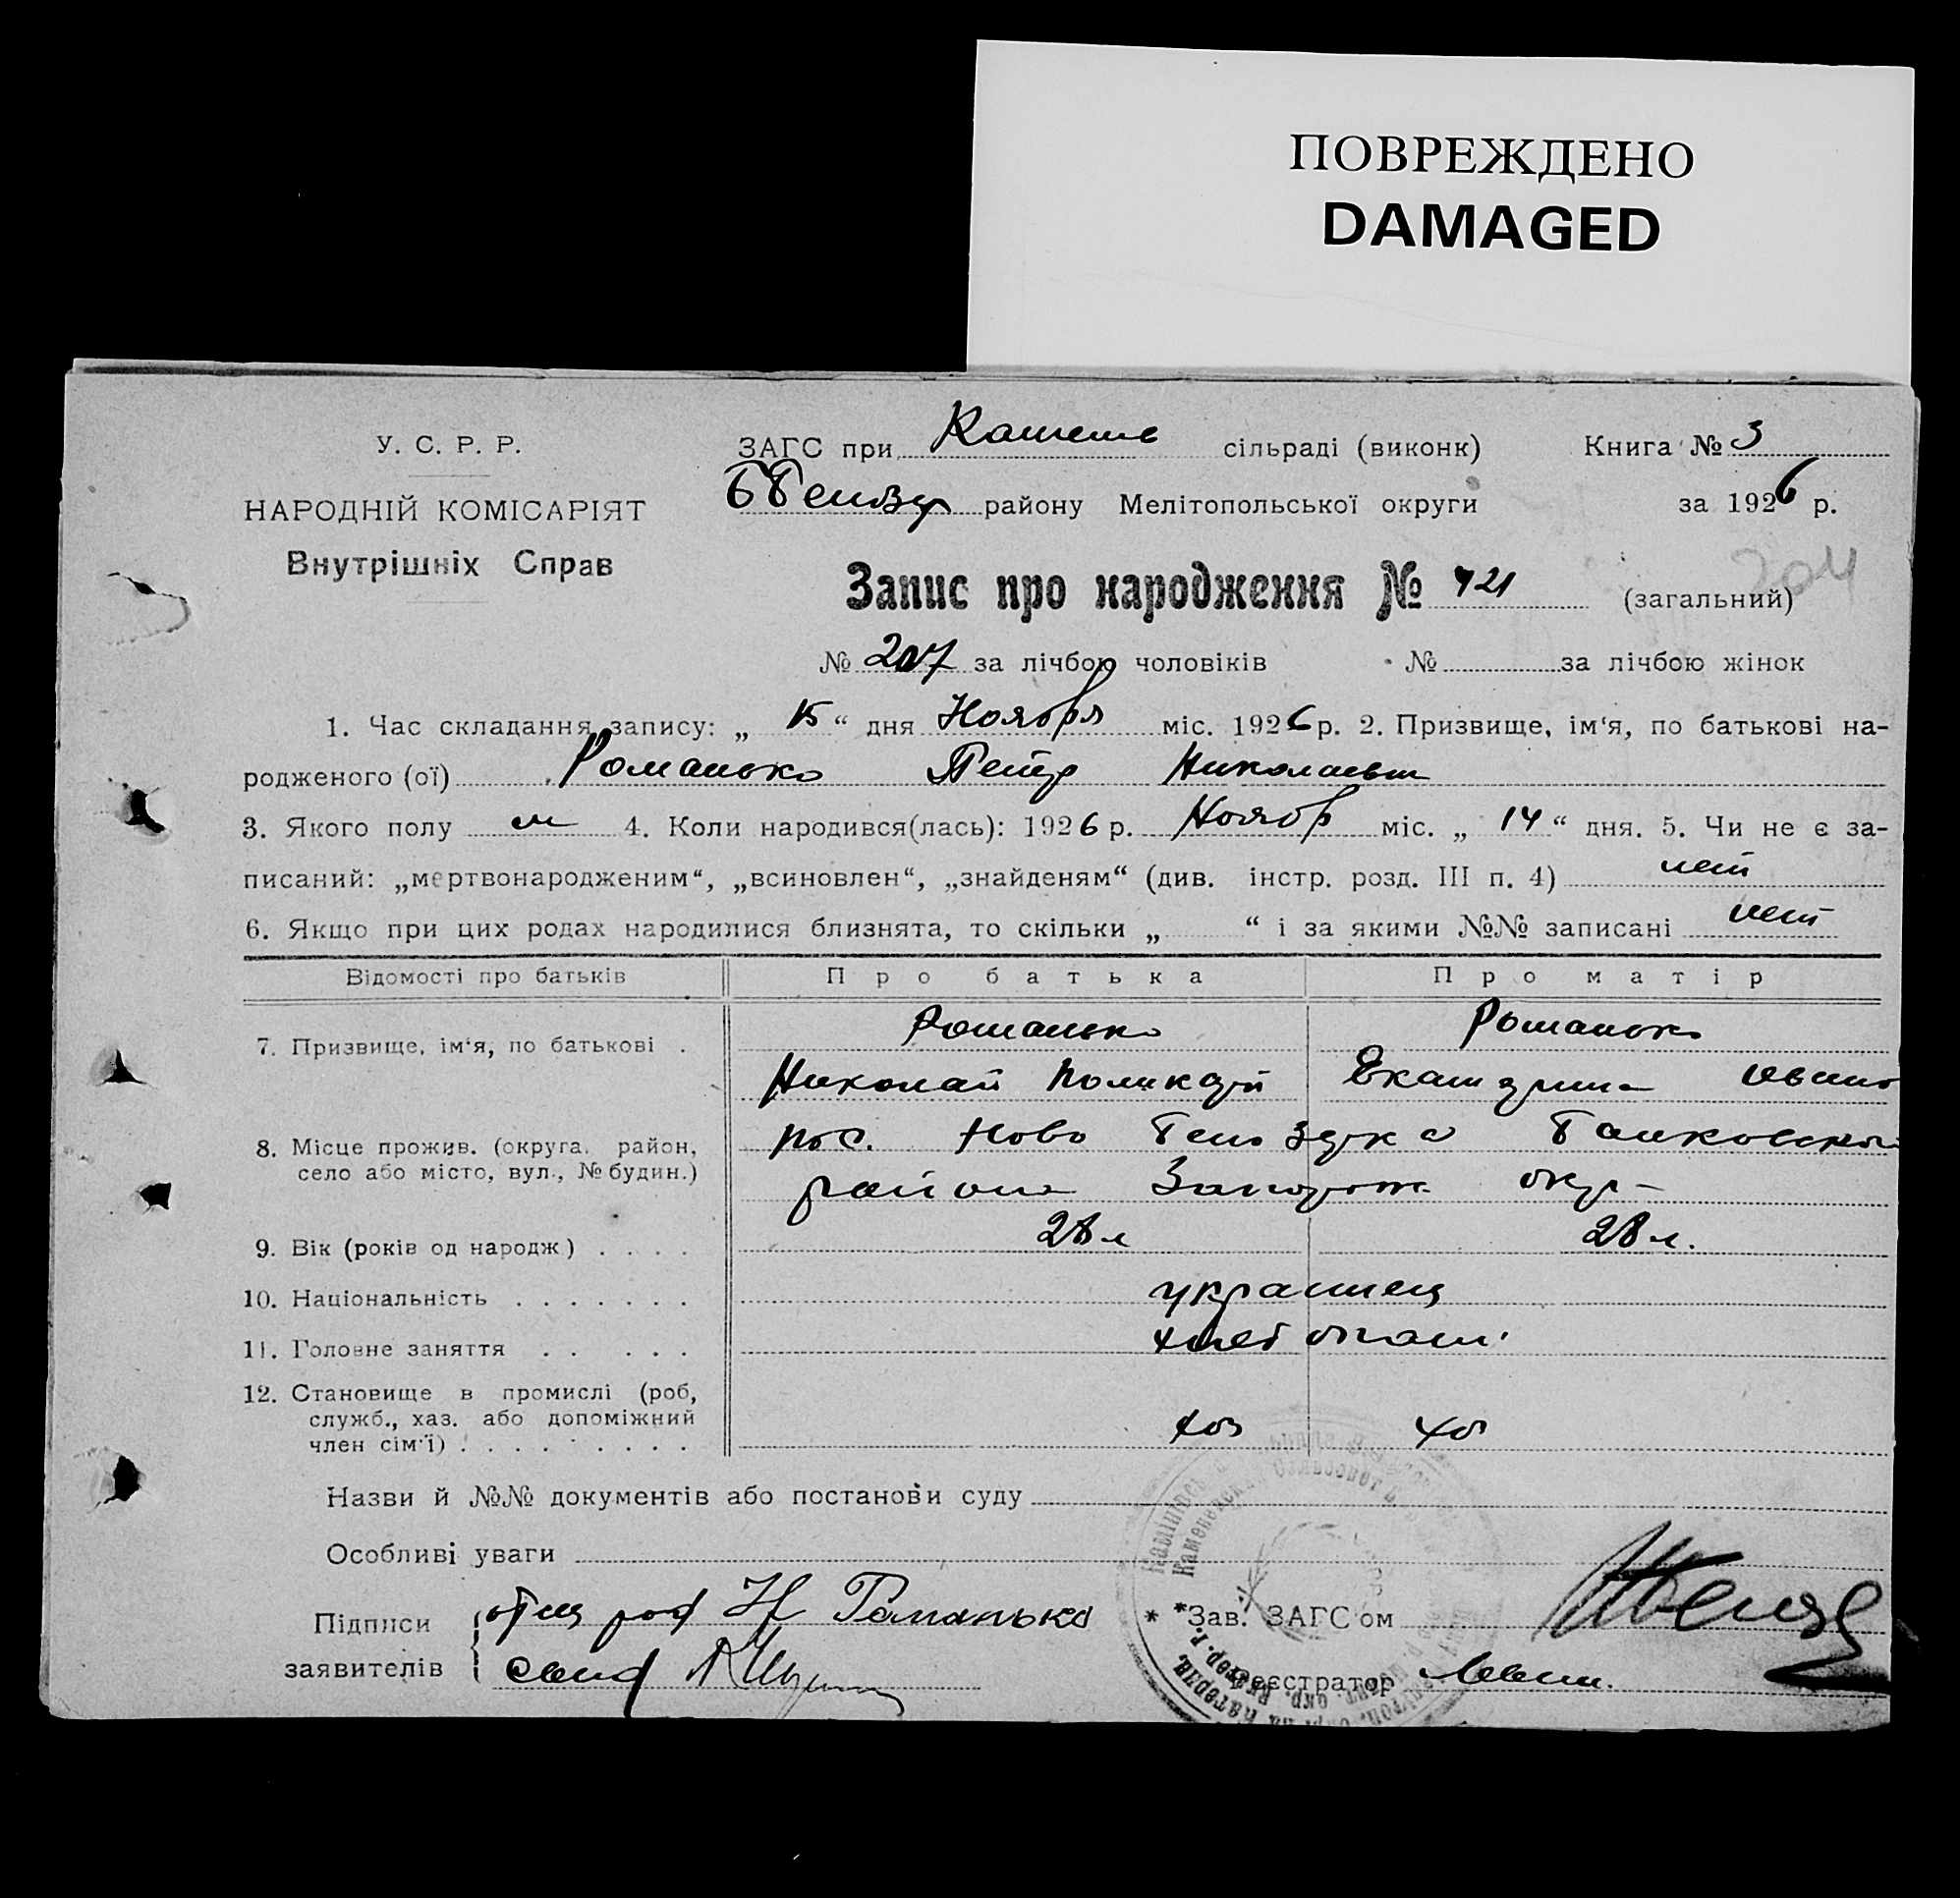 ПОВРЕЖДЕНО
DAMAGED
У. С. Р. Р.
НАРОДНІЙ КОМІСАРІЯТ
Внутрішніх Справ
ЗАГС при Каменс сільраді (виконк)
Книга № 3
району Мелітопольської округи
за 1926 р.
Запис про народження № 421 (загальний)
204
№ 207 за лічбою чоловіків № за лічбою жінок
1. Час складання запису: „ 15 “ дня Ноября міс. 1926 р. 2. Призвище, ім‘я, по батькові на-
родженого (ої) Романько Петр Николаевич
3. Якого полу м 4. Коли народився(лась): 1926 р. Ноябр міс. „ 14 “ дня. 5. Чи не є за-
писаний: „мертвонародженим“, „всиновлен“, „знайденям“ (див. інстр. розд. III п. 4) нет
6. Якщо при цих родах народилися близнята, то скільки „ “ і за якими №№ записані нет
Відомості про батьків Про батька Про матір
7. Призвище, ім‘я, по батькові . Романько Романько
Николай Поликар Екатерина Ивано
8. Місце прожив. (округа, район,
село або місто, вул., № будин.)
пос. Ново
района Запорож окр-
9. Вік (років од народж) . . . . 28 л 28 л.
10. Національність . . . . . . . украинец
11. Головне заняття . . . . . хлебопаш
12. Становище в промислі (роб,
служб., хаз. або допоміжний
член сім‘ї) . . . . . . . . . хоз хоз
Назви й №№ документів або постанови суду
Особливі уваги
Підписи
заявителів
отец Н Романько
* *Зав. ЗАГС‘ом
Реєстратор